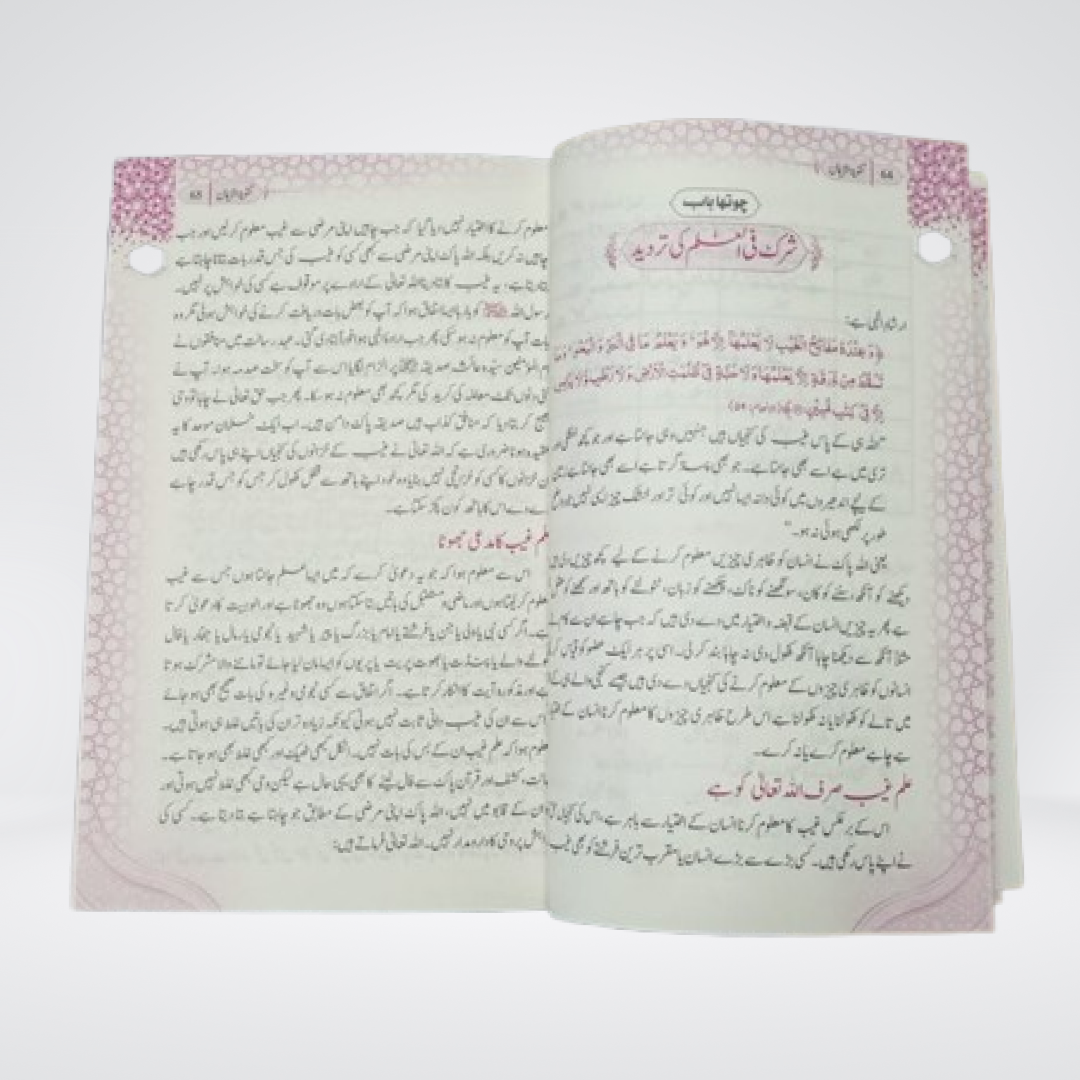 64 | تقویۃ الایمان
چوتھا باب
شرک فی العلم کی تردید
ارشاد الٰہی ہے:
﴿وَعِنْدَهٗ مَفَاتِحُ الْغَيْبِ لَا يَعْلَمُهَاۤ اِلَّا هُوَ ؕ وَ يَعْلَمُ مَا فِى الْبَرِّ وَ الْبَحْرِ ؕ وَمَا
تَسْقُطُ مِنْ وَّرَقَةٍ اِلَّا يَعْلَمُهَا وَ لَا حَبَّةٍ فِىْ ظُلُمٰتِ الْاَرْضِ وَ لَا رَطْبٍ وَّ لَا يَابِسٍ
اِلَّا فِىْ كِتٰبٍ مُّبِيْنٍ﴾ (الانعام: 59)
"اللہ ہی کے پاس غیب کی کنجیاں ہیں جنہیں وہی جانتا ہے اور جو کچھ خشکی اور
تری میں ہے اسے بھی جانتا ہے۔ جو بھی پتہ گرتا ہے اسے بھی جانتا ہے زمین
کے نیچے اندھیروں میں کوئی دانہ ایسا نہیں اور کوئی تر اور خشک چیز ایسی نہیں جو واضح
طور پر لکھی ہوئی نہ ہو۔"
یعنی اللہ پاک نے انسان کو ظاہری چیزیں معلوم کرنے کے لیے کچھ چیزیں دی ہیں
دیکھنے کو آنکھ، سننے کو کان، سونگھنے کو ناک، چکھنے کو زبان، ٹٹولنے کو ہاتھ اور سمجھنے کو عقل
ہے پھر یہ چیزیں انسان کے قبضہ و اختیار میں دے دی ہیں کہ جب چاہے ان سے کام لے
مثلاً آنکھ سے دیکھنا چاہا آنکھ کھول دی نہ چاہا بند کر لی۔ اسی پر ہر ایک عضو کو قیاس کر لو
انسانوں کو ظاہری چیزوں کے معلوم کرنے کی کنجیاں دے دی ہیں جیسے کنجی والے ہی کے
میں تالے کو کھولنا یا نہ کھولنا ہے اس طرح ظاہری چیزوں کا معلوم کرنا انسان کے اختیار
ہے چاہے معلوم کرے یا نہ کرے۔
علم غیب صرف اللہ تعالیٰ کو ہے
اس کے برعکس غیب کا معلوم کرنا انسان کے اختیار سے باہر ہے، اس کی کنجیاں اللہ
نے اپنے پاس رکھی ہیں۔ کسی بڑے سے بڑے انسان یا مقرب ترین فرشتے کو بھی غیب
65 | تقویۃ الایمان
معلوم کرنے کا اختیار نہیں دیا گیا کہ جب چاہیں اپنی مرضی سے غیب معلوم کر لیں اور جب
چاہیں نہ کریں بلکہ اللہ پاک اپنی مرضی سے کبھی کسی کو غیب کی جس قدر بات بتانا چاہتا ہے
بتا دیتا ہے، یہ غیب کا بتا دینا اللہ تعالیٰ کے ارادے پر موقوف ہے کسی کی خواہش پر نہیں۔
رسول اللہ ﷺ کو بارہا ایسا اتفاق ہوا کہ آپ کو بعض بات دریافت کرنے کی خواہش ہوئی مگر وہ
بات آپ کو معلوم نہ ہو سکی پھر جب ارادۂ الٰہی ہوا فوراً بتا دی گئی۔ عہد رسالت میں منافقوں نے
ام المومنین سیدہ عائشہ صدیقہ پر الزام لگایا اس سے آپ کو سخت صدمہ ہوا، آپ نے
کئی دنوں تک معاملہ کی کرید کی مگر کچھ بھی معلوم نہ ہو سکا۔ پھر جب حق تعالیٰ نے چاہا تو وحی
بھیج کر بتا دیا کہ منافق کذاب ہیں صدیقہ پاک دامن ہیں۔ اب ایک مسلمان موحد کا یہ
عقیدہ ہونا ضروری ہے کہ اللہ تعالیٰ نے غیب کے خزانوں کی کنجیاں اپنے ہی پاس رکھی ہیں
ان خزانوں کا کسی کو خزانچی نہیں بنایا وہ خود اپنے ہاتھ سے قفل کھول کر جس کو جس قدر چاہے
دے دے اس کا ہاتھ کون پکڑ سکتا ہے۔
علم غیب کا مدعی جھوٹا
اس سے معلوم ہوا کہ جو یہ دعویٰ کرے کہ میں ایسا علم جانتا ہوں جس سے غیب
معلوم کر لیتا ہوں اور ماضی و مستقبل کی باتیں بتا سکتا ہوں وہ جھوٹا ہے اور الوہیت کا دعویٰ کرتا
ہے۔ اگر کسی نبی یا ولی یا جن یا فرشتے یا امام یا بزرگ یا پیر یا شہید یا نجومی یا رمال یا جفار یا فال
کھولنے والے یا پنڈت یا بھوت پریت یا پریوں کو ایسا مان لیا جائے تو ماننے والا مشرک ہوتا
ہے اور مذکورہ آیت کا انکار کرتا ہے۔ اگر اتفاق سے کسی نجومی وغیرہ کی بات صحیح بھی ہو جائے
اس سے ان کی غیب دانی ثابت نہیں ہوتی کیونکہ زیادہ تر ان کی باتیں غلط ہی ہوتی ہیں۔
معلوم ہوا کہ علم غیب ان کے بس کی بات نہیں۔ اٹکل کبھی ٹھیک اور کبھی غلط بھی ہو جاتا ہے۔
کشف اور قرآن پاک سے فال لینے کا بھی یہی حال ہے لیکن وحی کبھی غلط نہیں ہوتی اور
ان کے قابو میں نہیں، اللہ پاک اپنی مرضی کے مطابق جو چاہتا ہے بتا دیتا ہے۔ کسی کی
خواہش پر وحی کا دارومدار نہیں۔ اللہ تعالیٰ فرماتے ہیں: